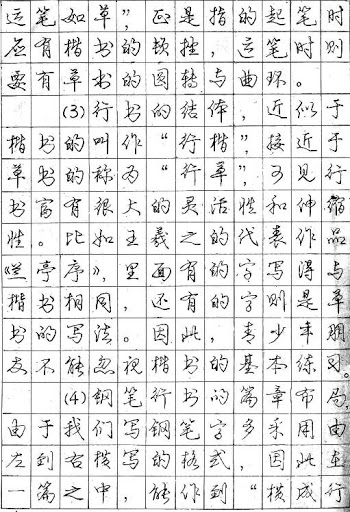 运笔如草”, 正是指的起笔时
应有楷书的顿挫, 运笔时则
要有草书的圆转与曲环。
(3)行书的结体, 近似于
楷书的叫作“行楷”, 接近于
草书的称为“行草”, 可见行
书富有很大的灵活性和伸缩
性。比如王羲之的代表作品
《兰亭序》, 里面有的字写得与
楷书相同, 还有的字则是草
书的写法。因此, 青少年朋
友不能忽视楷书的基本练习。
(4)钢笔行书的篇章布局,
由于我们写钢笔字多采用由
左到右横写的格式, 因此在
一篇之中, 能作到“横成行